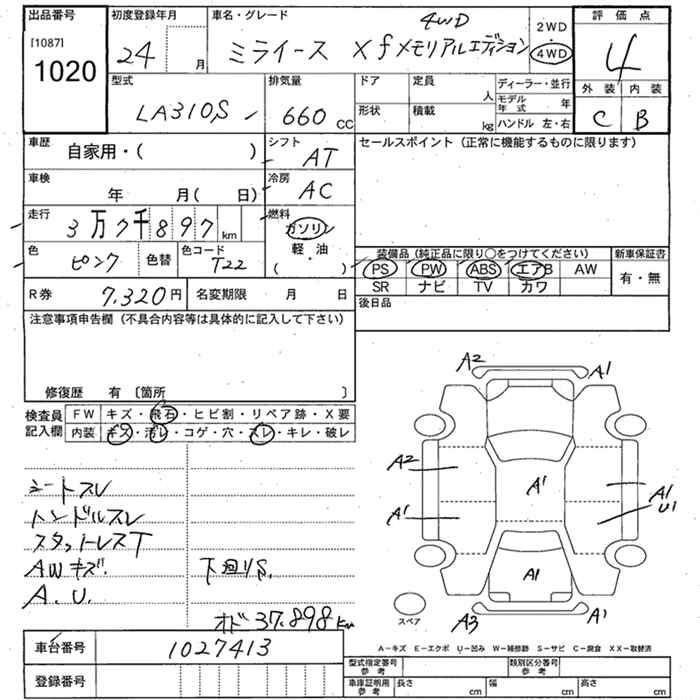 出品番号 初度登録年月 車名・グレード 評価点
[1087] 1020
24 月
ミライース Xfメモリアルエディション 4WD
2WD・4WD
4
外装 内装
C B
型式 LA310S
排気量 660 CC
ドア 定員 人
形状 積載 kg
ディーラー・並行
モデル年式 年
ハンドル 左・右
車歴 自家用・( )
シフト AT
セールスポイント（正常に機能するものに限ります）
車検 年 月( 日)
冷房 AC
走行 3万7千897 km
燃料 ガソリン・軽油 ( )
色 ピンク 色替 色コード T22
装備品（純正品に限り○をつけてください） 新車保証書
PS PW ABS エアB AW 有・無
SR ナビ TV カワ
R券 7,320円 名変期限 月 日
後日品
注意事項申告欄（不具合内容等は具体的に記入して下さい）
修復歴 有 〔箇所 〕
検査員記入欄
FW キズ・飛石・ヒビ割・リペア跡・X要
内装 キズ・汚レ・コゲ・穴・スレ・キレ・破レ
シートスレ
ハンドルスレ
スタットレスT
AWキズ 下廻りS
A.U.
オド 37.898km
A2 A1
A2
A1
A1
A1
U1
A1
A3 A1
スペア
A－キズ E－エクボ U－凹み W－補修跡 S－サビ C－腐食 XX－取替済
車台番号 1027413
登録番号
型式指定番号参考 類別区分番号参考
車庫証明用参考 長さ cm 幅 cm 高さ cm